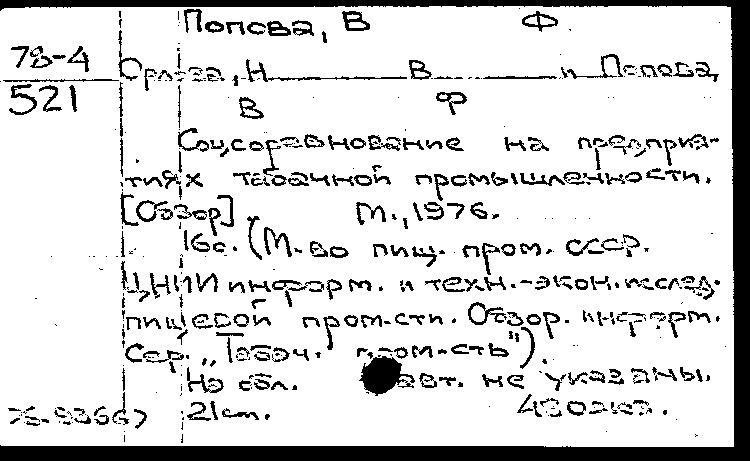 Попова, В Ф
78-4
521
Орлова, Н В и Попова,
В Ф
Соцсоревнование на предприя-
тиях табачной промышленности.
[Обзор]. М., 1976.
16с. (М-во пищ. пром. СССР.
ЦНИИ информ. и техн.-экон. исслед.
пищевой пром-сти. Обзор. информ.
Сер. „Табач. пром-сть").
На обл. авт. не указаны.
21cm.